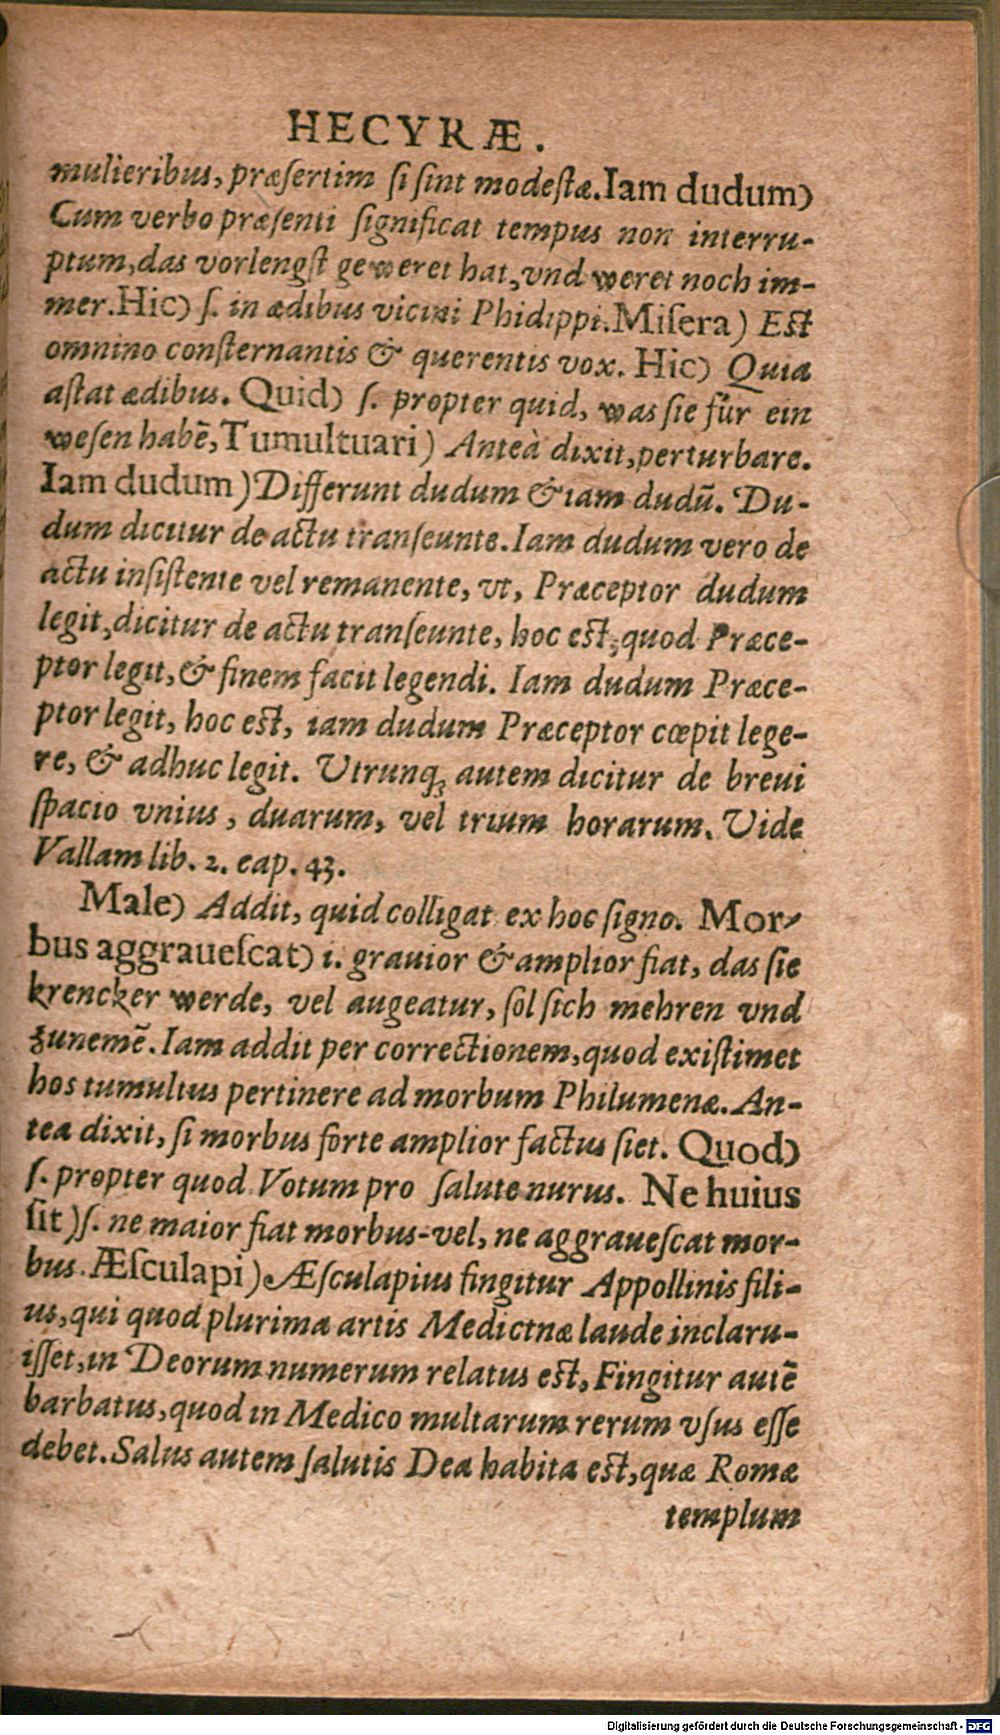 HECYRÆ.
mulieribus, præsertim si sint modestæ. Iam dudum)
Cum verbo præsenti significat tempus non interru-
ptum, das vorlengst geweret hat, vnd weret noch im-
mer. Hic) s. in ædibus vicini Phidippi. Misera) Est
omnino consternantis & querentis vox. Hic) Quia
astat ædibus. Quid) s. propter quid, was sie für ein
wesen habē, Tumultuari) Anteà dixit, perturbare.
Iam dudum) Differunt dudum & iam dudū. Du-
dum dicitur de actu transeunte. Iam dudum vero de
actu insistente vel remanente, vt, Præceptor dudum
legit, dicitur de actu transeunte, hoc est, quod Præce-
ptor legit, & finem facit legendi. Iam dudum Præce-
ptor legit, hoc est, iam dudum Præceptor cœpit lege-
re, & adhuc legit. Utrunq; autem dicitur de breui
spacio vnius, duarum, vel trium horarum. Uide
Vallam lib. 2. cap. 43.
Male) Addit, quid colligat ex hoc signo. Mor-
bus aggrauescat) i. grauior & amplior fiat, das sie
krencker werde, vel augeatur, sol sich mehren vnd
zunemē. Iam addit per correctionem, quod existimet
hos tumultus pertinere ad morbum Philumenæ. An-
tea dixit, si morbus forte amplior factus siet. Quod)
s. propter quod Votum pro salute nurus. Ne huius
sit) s. ne maior fiat morbus-vel, ne aggrauescat mor-
bus. Æsculapi) Æsculapius fingitur Appollinis fili-
us, qui quod plurima artis Medictnæ laude inclaru-
isset, in Deorum numerum relatus est, Fingitur autē
barbatus, quod in Medico multarum rerum vsus esse
debet. Salus autem salutis Dea habita est, quæ Romæ
templum
Digitalisierung gefördert durch die Deutsche Forschungsgemeinschaft - DFG